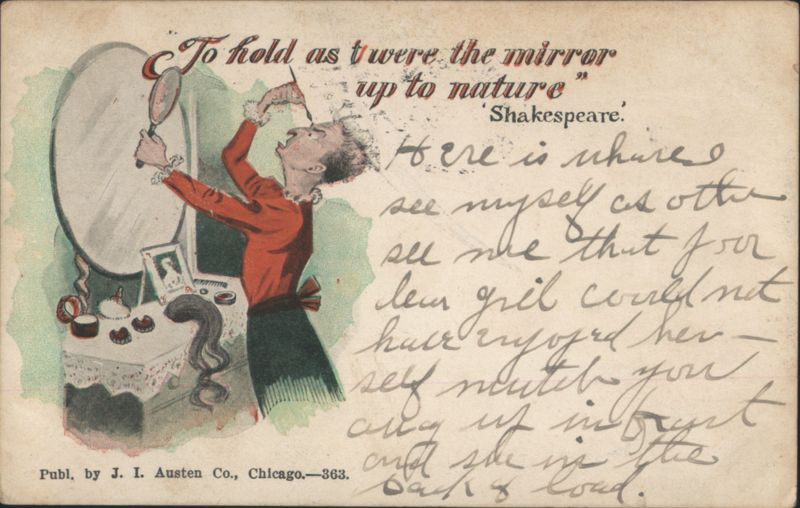 "To hold as t'were the mirror
up to nature"
'Shakespeare.'
Here is where I
see myself as othe
see me that poor
dear girl could not
have enjoyed her-
self mutch you
away up in front
and she in the
back & loud.
Publ. by J. I. Austen Co., Chicago.—363.